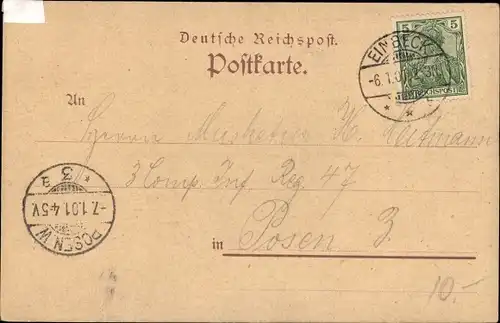 5 5
Deutsche Reichspost.
EINBECK
Postkarte.
-6.1.01
REICHSPOST
* *
An
Herrn Musketier H.
3 Comp. Inf. Reg 47
* 3 a
-7.1.01.4-5V.
POSEN W.
in Posen 3.
10.-